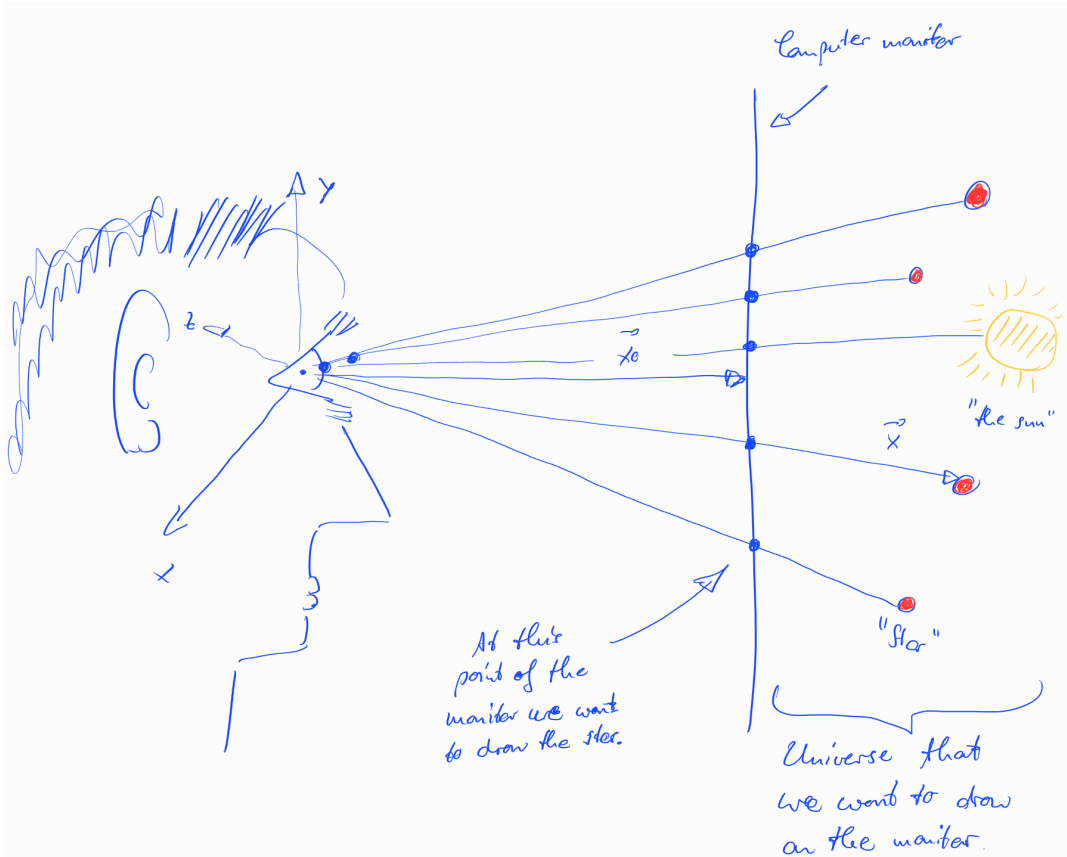 Computer monitor
y
z
x0
"the sun"
x
x
At this
point of the
monitor we want
to draw the star.
"Star"
Universe that
we want to draw
on the monitor.